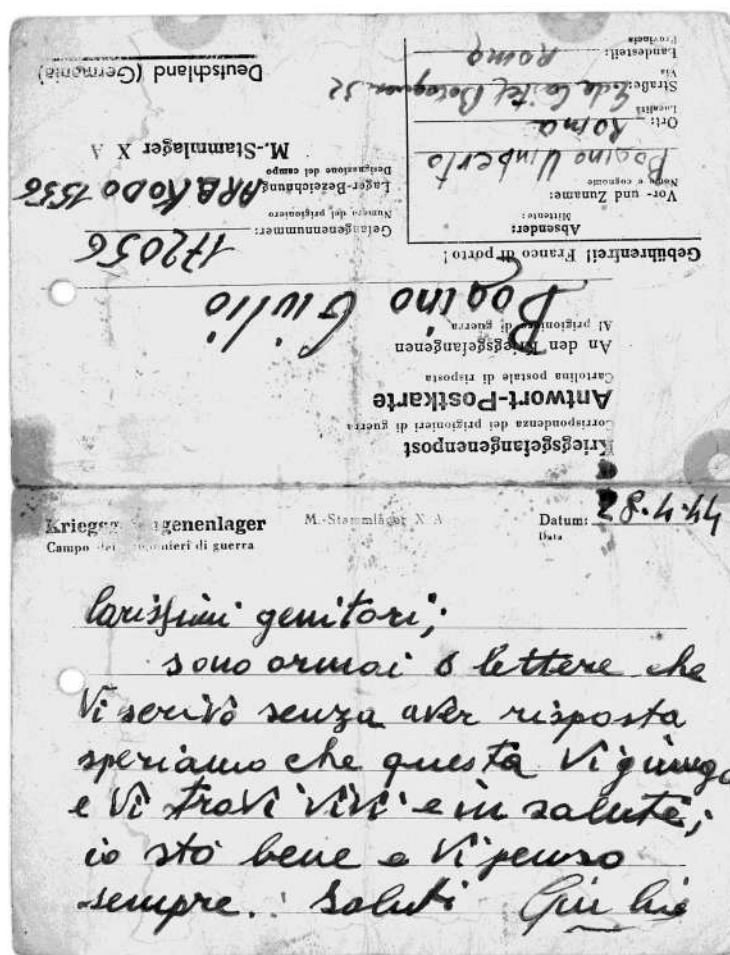 Kriegsgefangenenpost
Corrispondenza dei prigionieri di guerra
Antwort-Postkarte
Cartolina postale di risposta
An den Kriegsgefangenen
Al prigioniero di guerra
Bogino Giulio
Gebührenfrei! Franco di porto!
Absender:
Mittente:
Vor- und Zuname:
Nome e cognome
Bogino Umberto
Ort: Roma
Località
Straße:
Via
Landesteil: Roma
Provincia
Gefangenennummer: 172056
Numero del prigioniero
Lager-Bezeichnung ARB.KODO 1556
Designazione del campo
M.-Stammlager X A
Deutschland (Germania)
Kriegsgefangenenlager M.-Stammlager X A Datum:
Campo dei prigionieri di guerra Data
Carissimi genitori;
sono ormai 6 lettere che
Vi scrivo senza aver risposta
speriamo che questa Vi giunga
e Vi trovi vivi e in salute;
io sto bene e Vi penso
sempre. Saluti Giulio